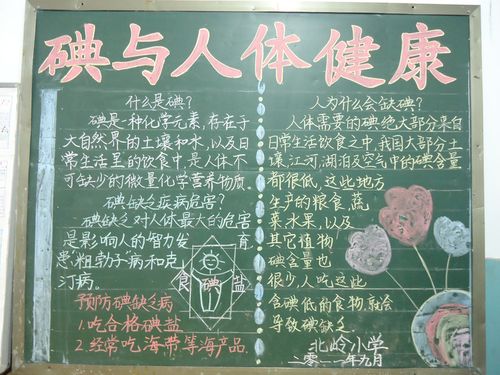 碘与人体健康
什么是碘?
碘是一种化学元素,存在于
大自然界的土壤和水,以及日
常生活里的饮食中,是人体不
可缺少的微量化学营养物质。
碘缺乏疾病危害?
碘缺乏对人体最大的危害
是影响人的智力发育
患粗勃子病和克
汀病。
食碘盐
预防碘缺乏病
1.吃合格碘盐
2.经常吃海带等海产品.
人为什么会缺碘?
人体需要的碘绝大部分来自
日常生活饮食之中,我国大部分土
壤江河,湖泊及空气中的碘含量
都很低,这些地方
生产的粮食,蔬
菜,水果,以及
其它植物
碘含量也
很少,人吃这些
含碘低的食物,就会
导致碘缺乏
北岭小学
二零一一年九月